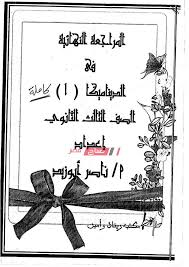 المراجعة النهائية
فى
الديناميكا (١) كاملة
الصف الثالث الثانوى
إعداد
م/ ناصر أبوزيد